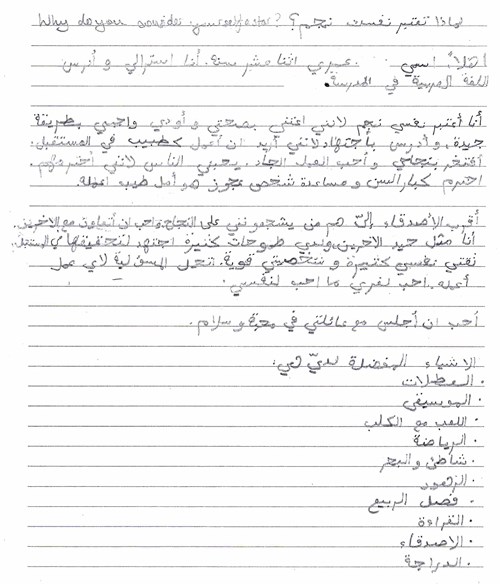 لماذا تعتبر نفسك نجم؟ ؟ Why do you consider yourself a star?
أهلاً! اسمي . عمري اثنا عشر سنة. أنا استرالي و أدرس
اللغة العربية في المدرسة.
أنا أعتبر نفسي نجم لانني اعتني بصحتي و أودي واجبي بطريقة
جيدة. وأدرس بأجتهاد لانني أريد ان أعمل كطبيب في المستقبل.
أفتخر بنجاحي و أحب العمل الجاد. يحبني الناس لانني أحترمهم.
احترم كبار السن و مساعدة شخص عجوز هو أمل طيب اعمله.
أقرب الأصدقاء إليّ هم من يشجعونني على النجاح واحب ان أتعاون مع الاخرين.
أنا مثل جيد الاخرين ولدي طموحات كثيرة اجتهد لتحقيقها في المستقبل
ثقتي بنفسي كثيرة و شخصيتي قوية. اتحمل المسؤلية لاي عمل
أعمله. احب لغيري ما احب لنفسي.
أحب ان أجلس مع عائلتي في محبة و سلام.
الاشياء المفضلة لديّ هي:
· العطلات
· الموسيقى
· اللعب مع الكلب
· الرياضة
· شاطئ والبحر
· الزهور
· فصل الربيع
· القراءة
· الاصدقاء
· الدراجة